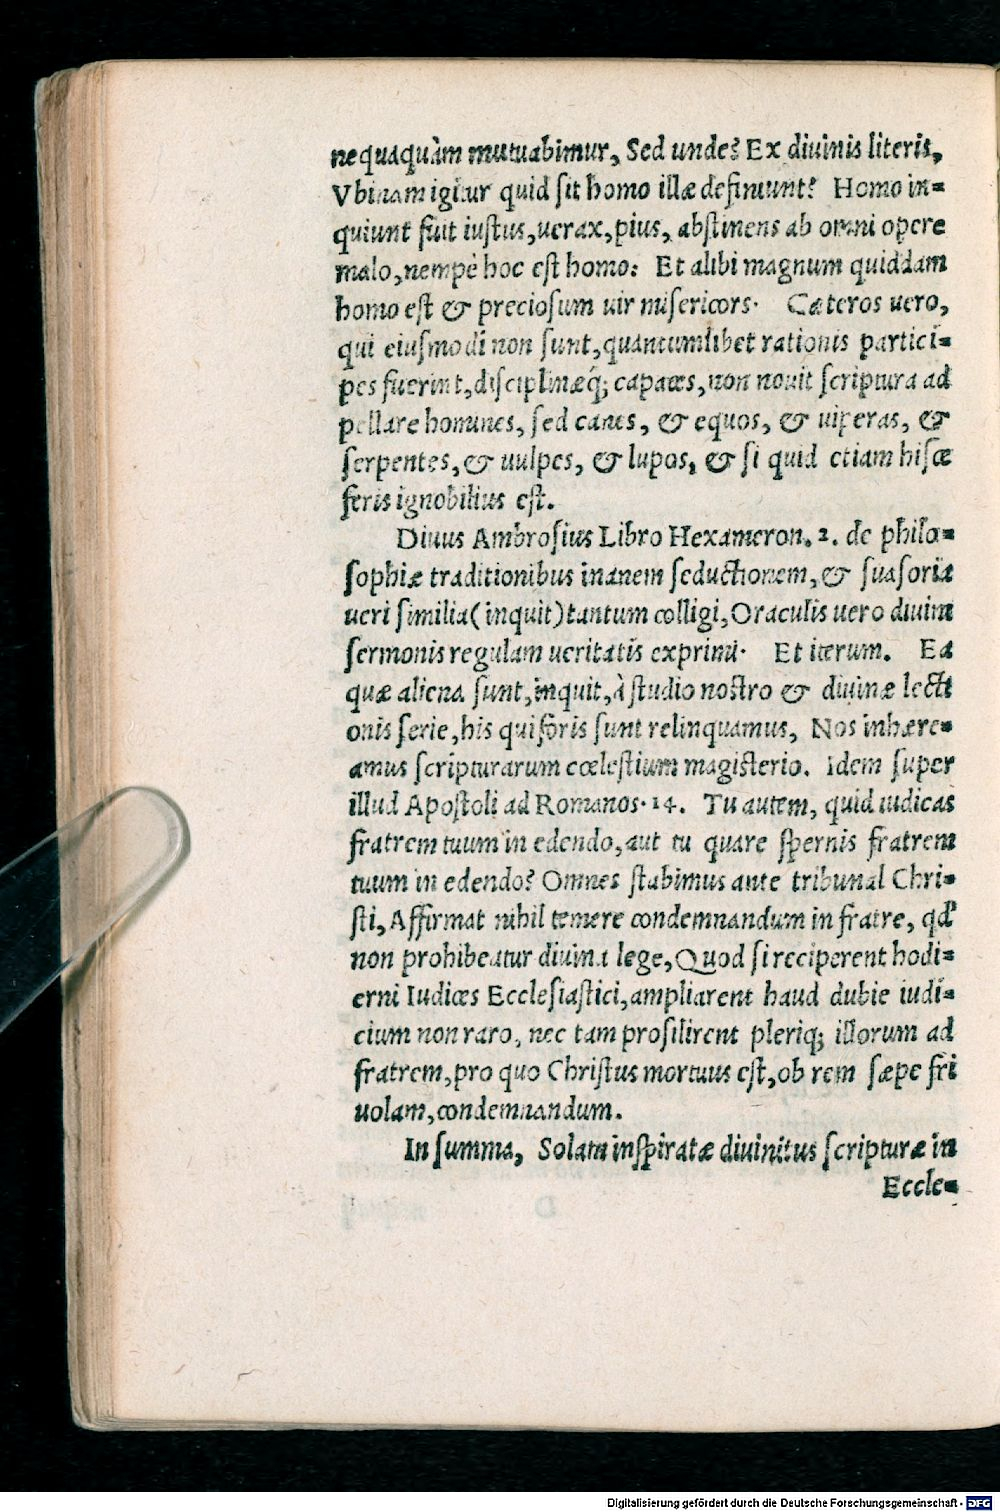 nequaquàm mutuabimur, Sed unde? Ex diuinis literis,
Vbinam igitur quid sit homo illæ definiunt? Homo in=
quiunt fuit iustus, uerax, pius, abstinens ab omni opere
malo, nempè hoc est homo: Et alibi magnum quiddam
homo est & preciosum uir misericors. Cæteros uero,
qui eiusmodi non sunt, quantumlibet rationis partici=
pes fuerint, disciplinæq́; capaces, non nouit scriptura ad
pellare homines, sed canes, & equos, & uiperas, &
serpentes, & uulpes, & lupos, & si quid etiam hisce
feris ignobilius est.
Diuus Ambrosius Libro Hexameron. 2. de philo=
sophiæ traditionibus inanem seductionem, & suasoria
ueri similia (inquit) tantum colligi, Oraculis uero diuini
sermonis regulam ueritatis exprimi. Et iterum. Ea
quæ aliena sunt, inquit, à studio nostro & diuinæ lecti
onis serie, his qui foris sunt relinquamus, Nos inhære=
amus scripturarum cœlestium magisterio. Idem super
illud Apostoli ad Romanos. 14. Tu autem, quid iudicas
fratrem tuum in edendo, aut tu quare spernis fratrem
tuum in edendo? Omnes stabimus ante tribunal Chri=
sti, Affirmat nihil temere condemnandum in fratre, qđ
non prohibeatur diuina lege, Quod si reciperent hodi=
erni Iudices Ecclesiastici, ampliarent haud dubie iudi=
cium non raro, nec tam prosilirent pleriq; illorum ad
fratrem, pro quo Christus mortuus est, ob rem sæpe fri
uolam, condemnandum.
In summa, Solam inspiratæ diuinitus scripturæ in
Eccle=
Digitalisierung gefördert durch die Deutsche Forschungsgemeinschaft - DFG